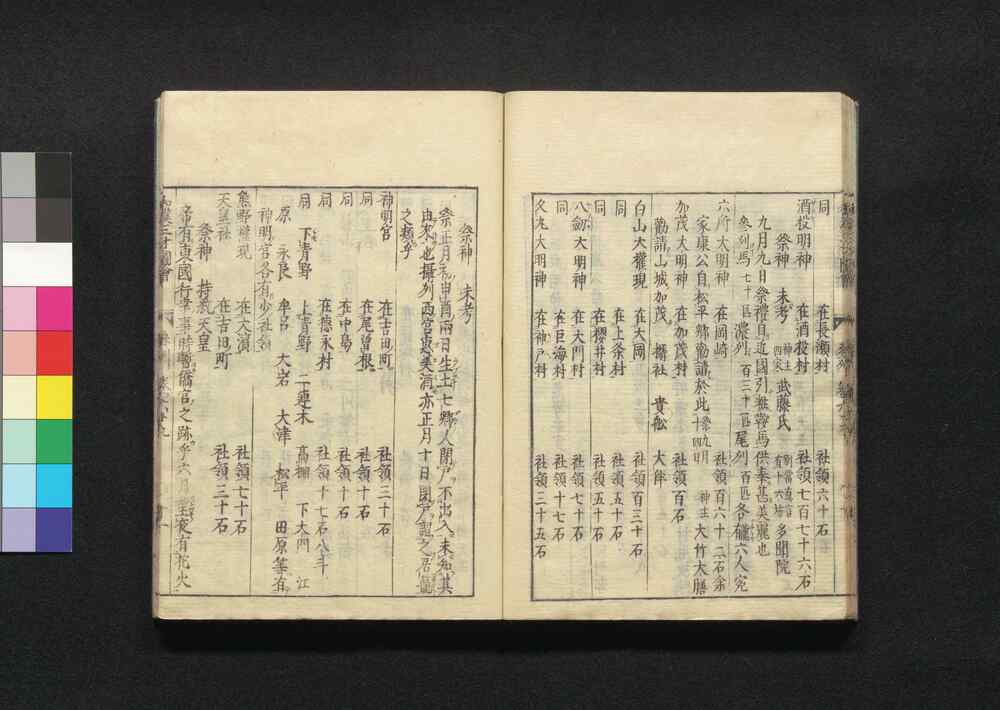 同 在長瀬村 社領六十石
酒投明神 在酒投村 社領七百七十六石
祭神 未考 神主 四家 武藤氏 別當真言 有十六坊 多聞院
九月九日祭禮自近國引粧鞍馬供奉甚美麗也
参列馬七十匹濃列二百三十二匹尾列百匹各
六所大明神 在岡崎 社領百六十二石余
家康公自松平郷勧請於此 祭九月十四日 神主大竹大膳
加茂大明神 在加茂村 社領百石
勧請山城加茂 攝社 貴舩 大伴
白山大權現 在大岡 社領百三十石
同 在上条村 社領五十石
同 在櫻井村 社領五十石
八劔大明神 在大門村 社領七十石
同 在巨海村 社領十七石
久九大明神 在神戸村 社領三十五石
祭神 未考
祭正月初申酉兩日生土七郷人閉戸不出入未知其
由来也攝列西宮惠美湏亦正月十日閉戸謂之居籠
之類乎
神明宮 在吉田町 社領三十石
同 在尾曽根 社領十石
同 在中島 社領十石
同 在徳永村 社領十七石八斗
同 下青野 上青野 二連木 高棚 下大門 江
原 永良 牟呂 大岩 大津 松平 田原等有
神明宮各有少社領
熊野權現 在大濱 社領七十石
天皇社 在吉田町 社領三十石
祭神 持統天皇
帝有東國行幸時暫宮之跡乎六月望夜有花火